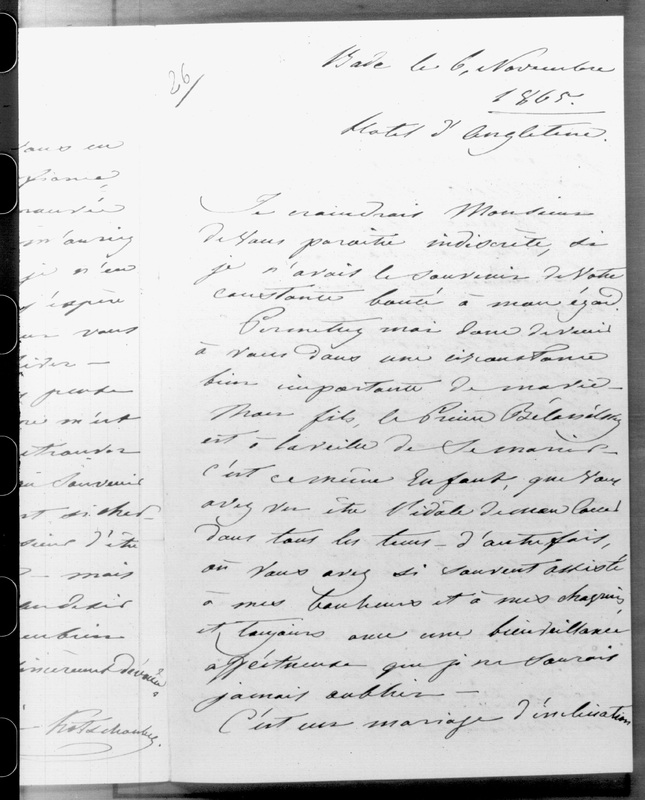 26/
Bade le 6, Novembre
1865.
Hotel d'Angleterre.
Je craindrais Monsieur
de Vous paraitre indiscrète, si
je n'avais le souvenir de Votre
constante bonté à mon égard.
Permettez moi donc de venir
à Vous dans une circonstance
bien importante de ma vie –
Mon fils, le Prince Bélossélsky
est à la veille de se marier –
c'est ce même Enfant, que Vous
avez vu être l'idôle de mon coeur
dans tous les tems – d'autrefois,
où Vous avez si souvent assisté
à mes bonheurs et à mes chagrins,
et toujours avec une bienveillance
affectueuse que je ne saurais
jamais oublier –
C'est un mariage d'inclination
Vous en
m'auriez
je n'en
j'espère
vous
pense
m'est
retrouver
souvenir
si cher –
d'être
– mais
sincèrement dévouée
Kotschoubey.